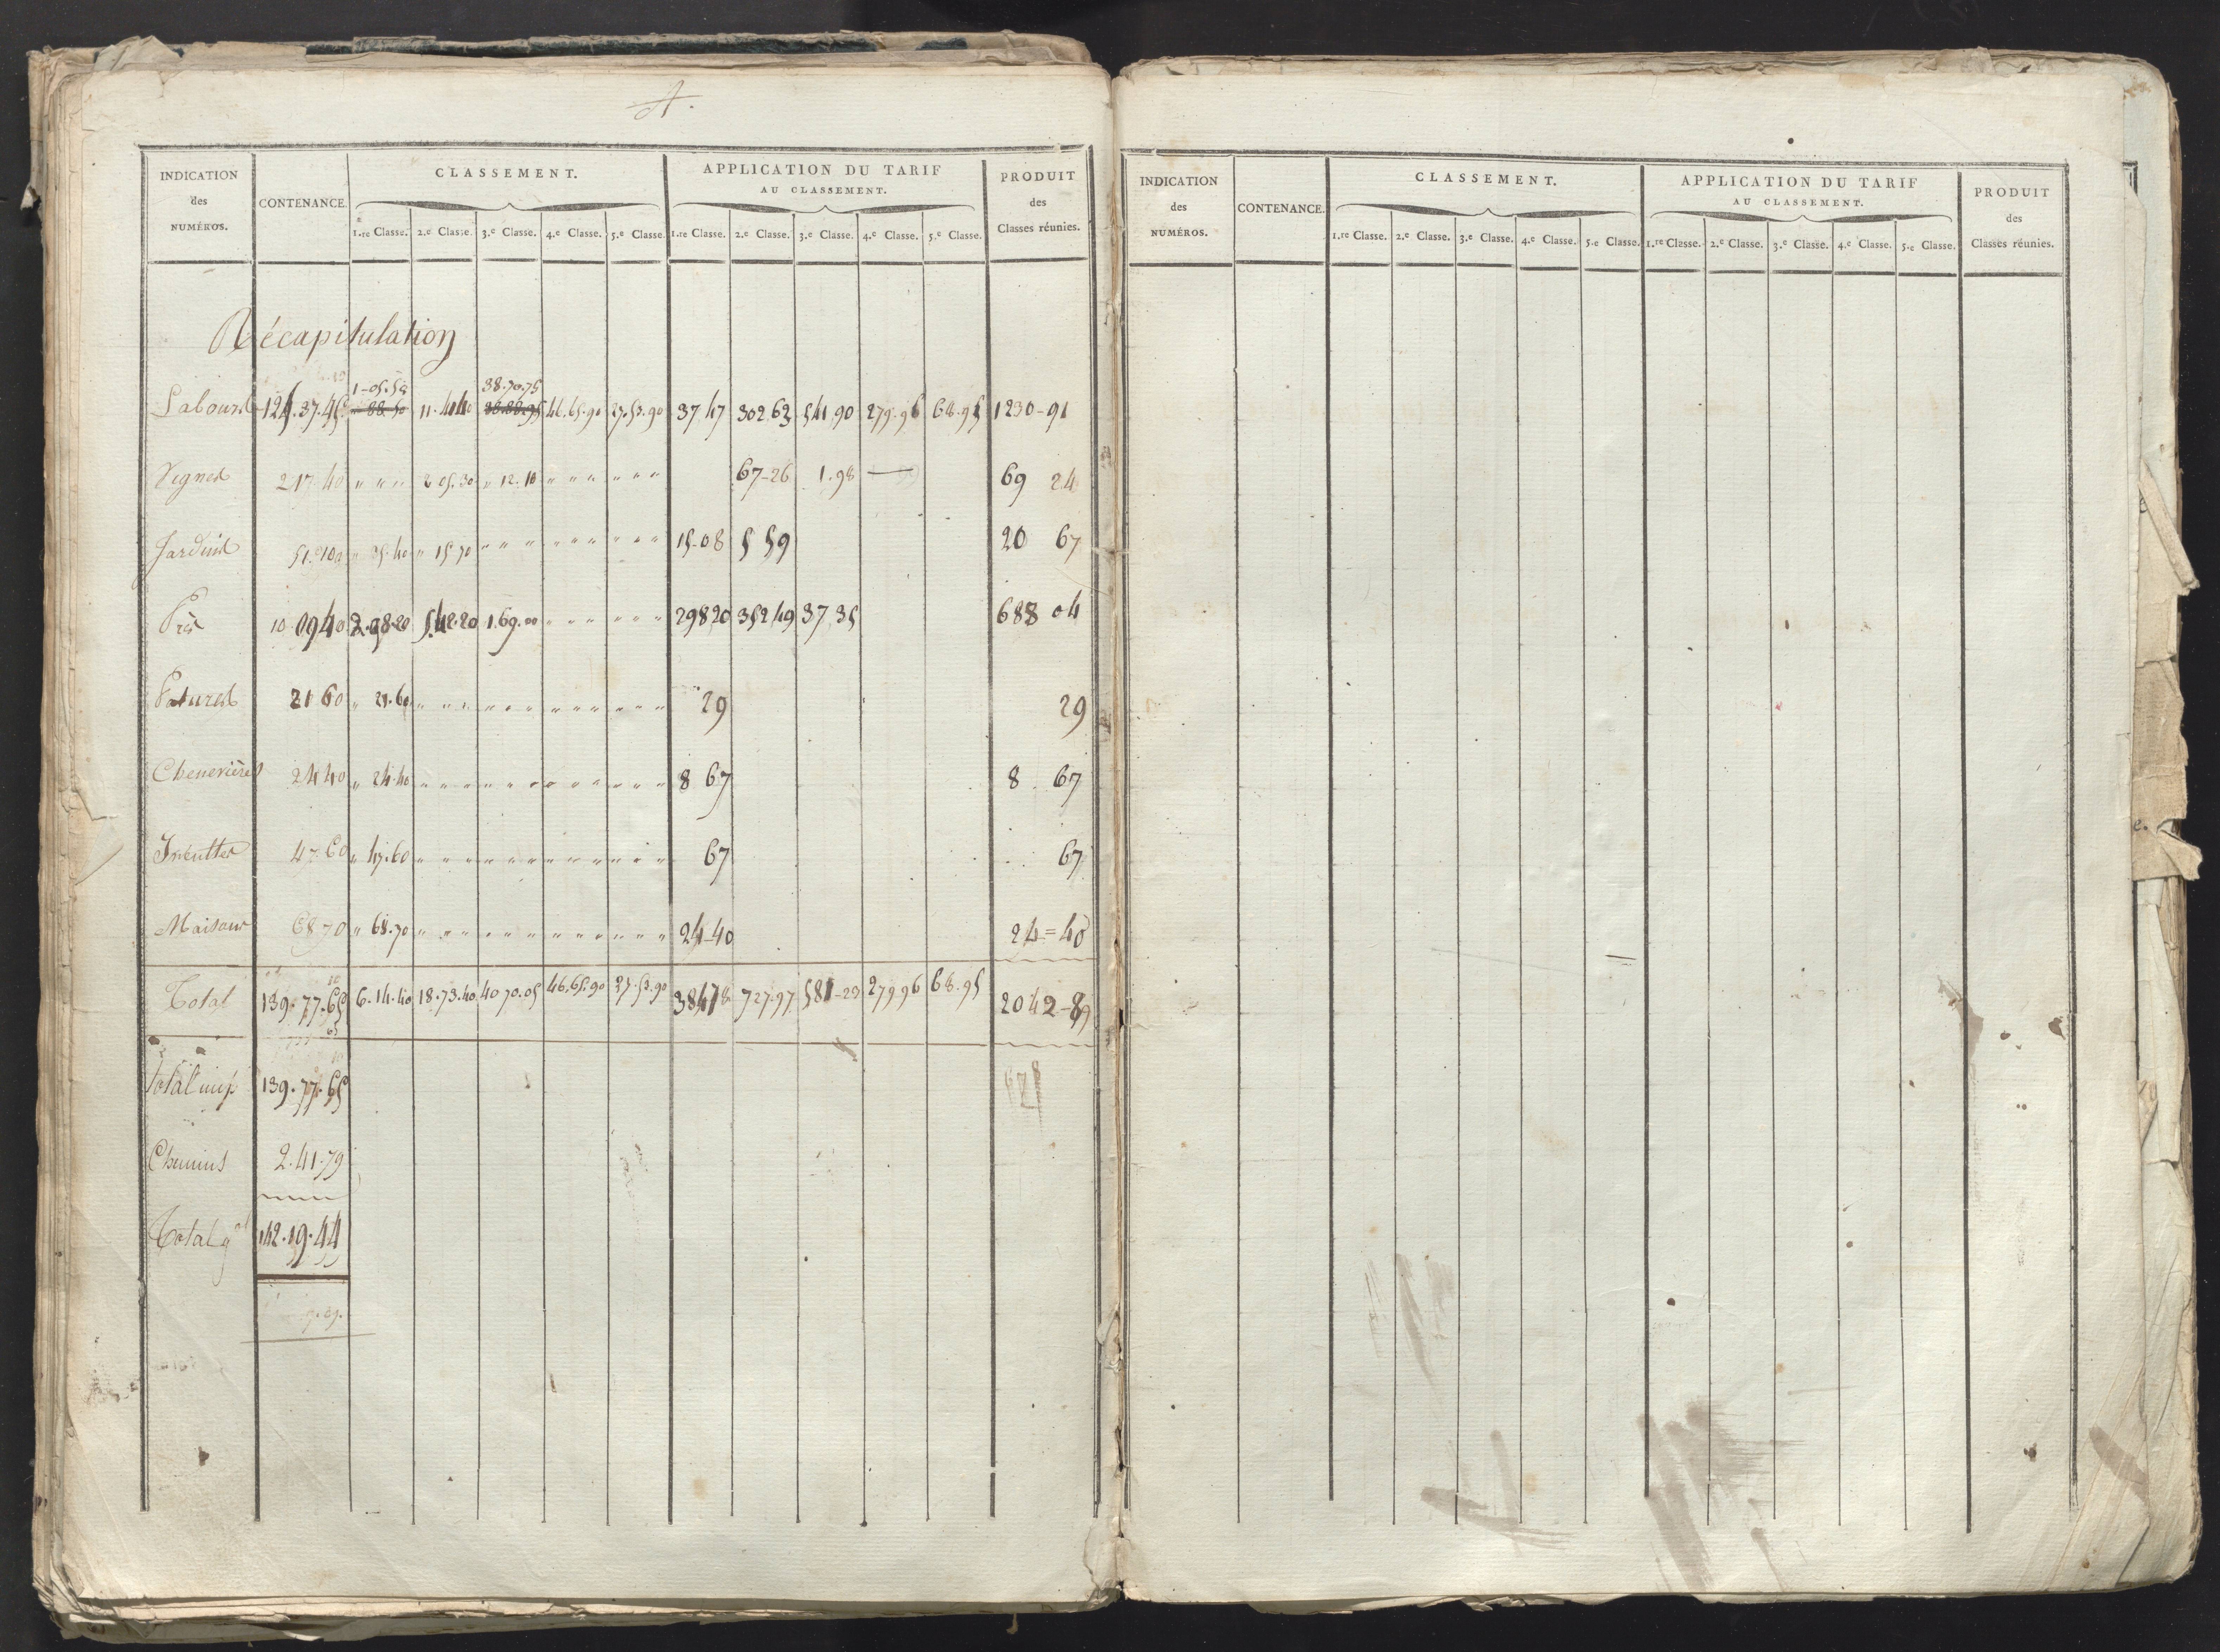 A.
INDICATION des NUMÉROS. CONTENANCE. CLASSEMENT. APPLICATION DU TARIF AU CLASSEMENT. PRODUIT des Classes réunies.
1.re Classe. 2.e Classe. 3.e Classe. 4.e Classe. 5.e Classe. 1.re Classe. 2.e Classe. 3.e Classe. 4.e Classe. 5.e Classe.
Récapitulation
1-05.50 38.70.75
Labours 125.37.45 11.44.40 46.65.90 27.53.90 37.47 302 63 541.90 279.96 68.95 1230-91
Vignes 2 17 40 " " " 2 05.30 " 12.10 " " " " " " 67-26 1.98 — 69 24
Jardins 51.10 " 35.40 " 15.70 " " " " " " " " " 15-08 5 59 20 67
Prés 10.09 40 2.98.20 5.42.20 1.69.00 " " " " " " 298 20 352 49 37.35 688 04
Patures 21 60 " 21.60 " " " " " " " " " " " " 29 29
Chenevières 24 40 " 24.40 " " " " " " " " " " " " 8 67 8 67
47 60 " 47.60 " " " " " " " " " " " " 67 67
Maisons 68 70 " 68.70 " " " " " " " " " " " " 24-40 24=40
Total 139.77.65 6.14.40 18.73.40 40 70.05 46.65.90 27.53.90 384 78 727.97 581-23 279 96 68.95 2042-89
Total imp 139.77.65
Chemins 2.41.79
Total gal 142.19.44
INDICATION des NUMÉROS. CONTENANCE. CLASSEMENT. APPLICATION DU TARIF AU CLASSEMENT. PRODUIT des Classes réunies.
1.re Classe. 2.e Classe. 3.e Classe. 4.e Classe. 5.e Classe. 1.re Classe. 2.e Classe. 3.e Classe. 4.e Classe. 5.e Classe.